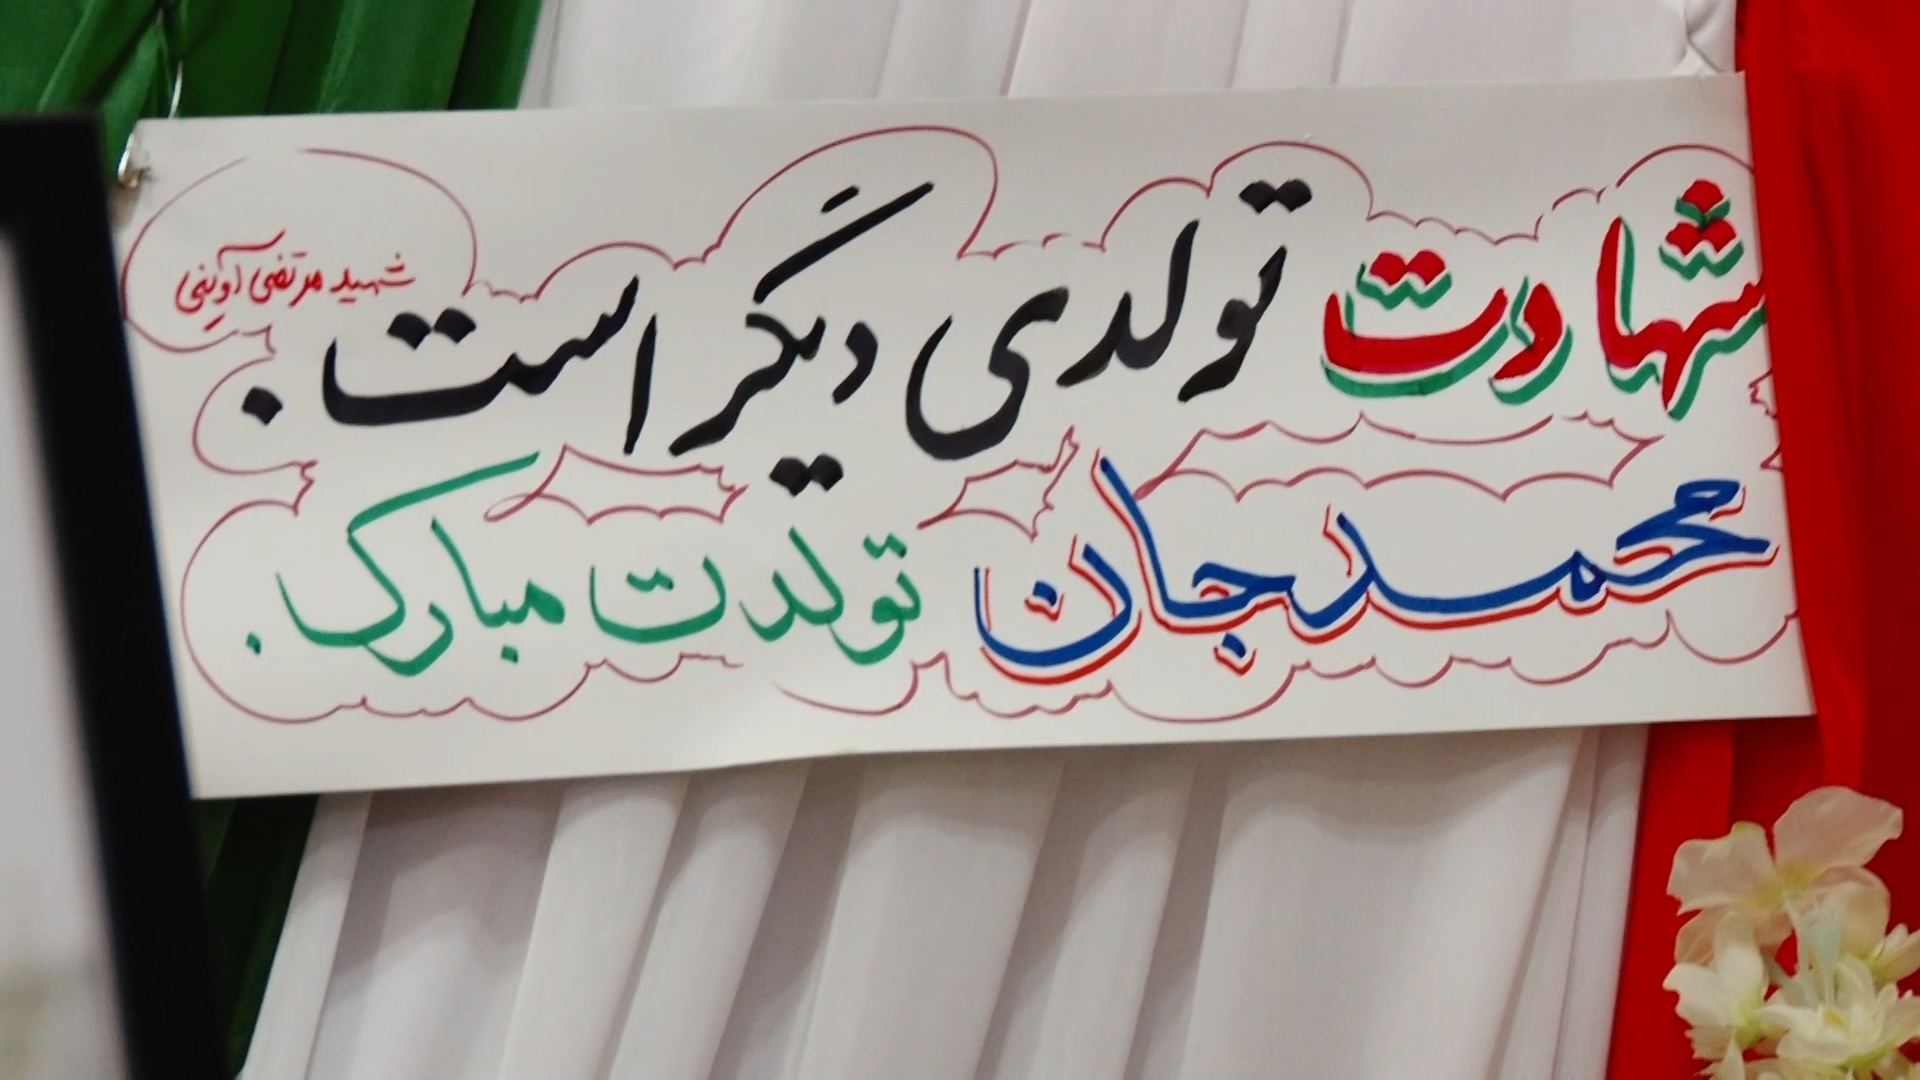 شهادت تولدی دیگر است.
شهید مرتضی آوینی
محمد جان تولدت مبارک.